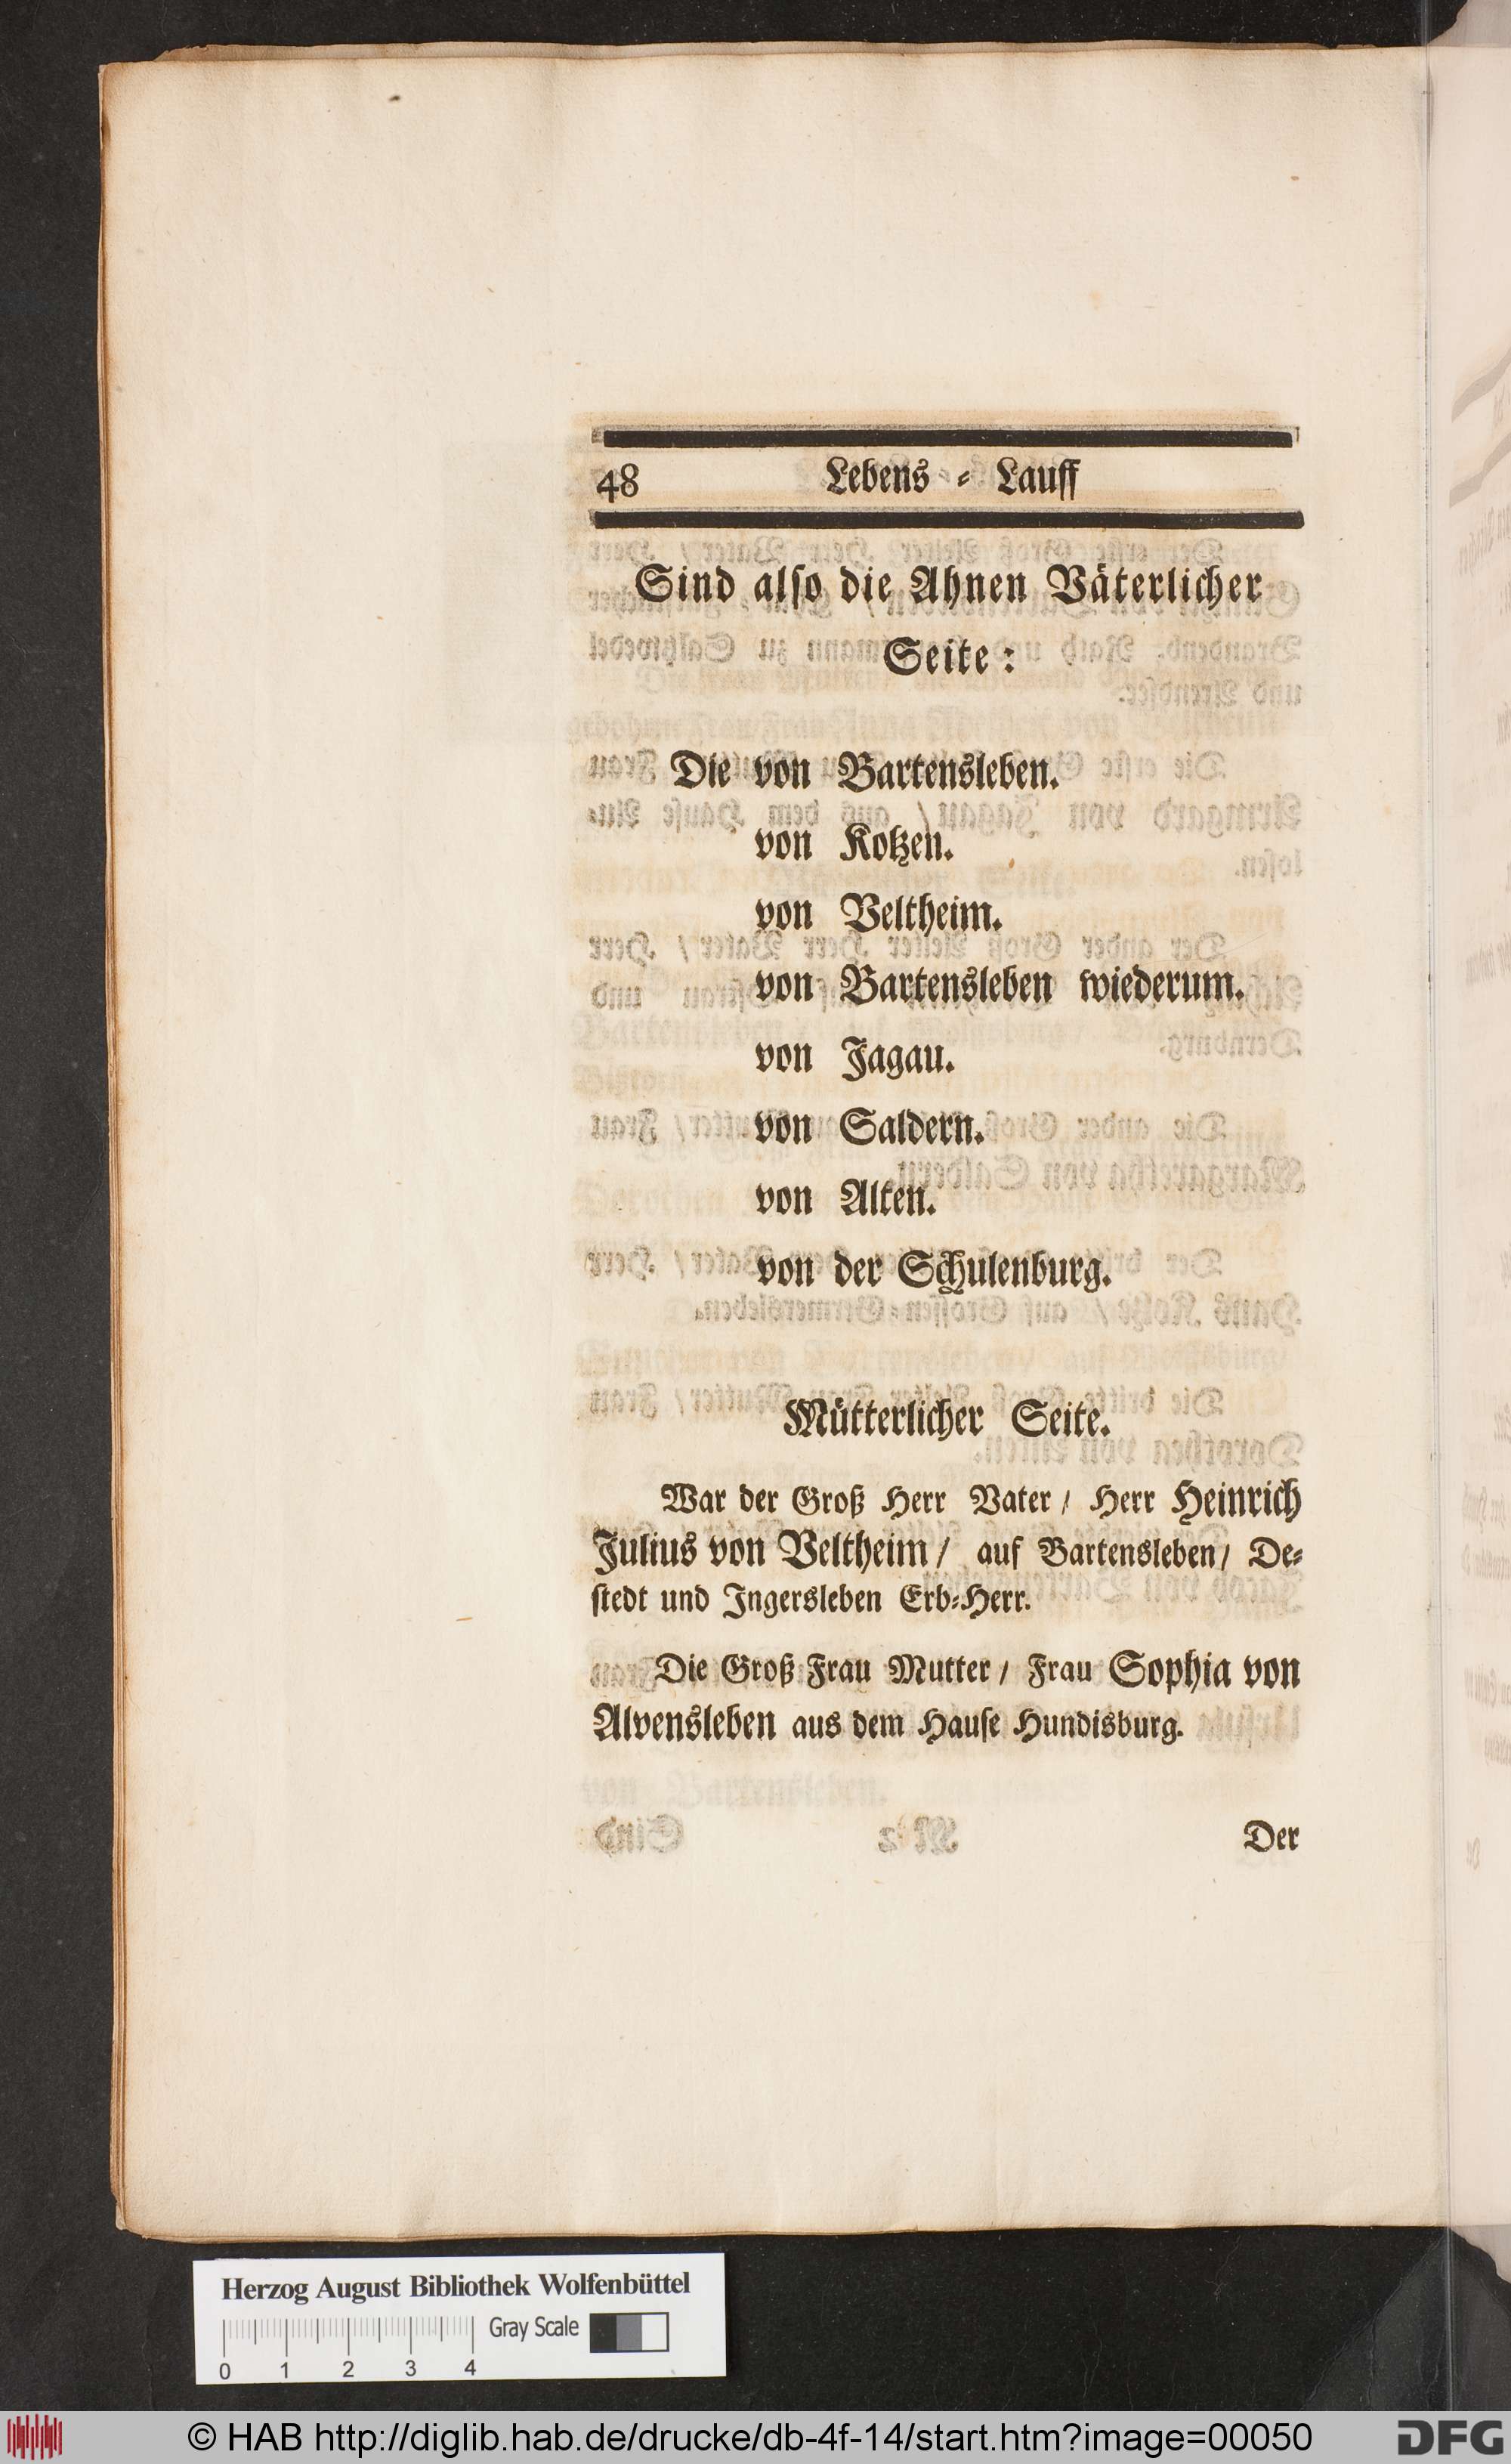 48 Lebens-Lauff
Sind also die Ahnen Väterlicher
Seite:
Die von Bartensleben.
von Kotzen.
von Veltheim.
von Bartensleben wiederum.
von Jagau.
von Saldern.
von Alten.
von der Schulenburg.
Mütterlicher Seite.
War der Groß Herr Vater / Herr Heinrich
Julius von Veltheim / auf Bartensleben / De-
stedt und Ingersleben Erb-Herr.
Die Groß Frau Mutter / Frau Sophia von
Alvensleben aus dem Hause Hundisburg.
Der
Herzog August Bibliothek Wolfenbüttel
Gray Scale
0 1 2 3 4
© HAB http://diglib.hab.de/drucke/db-4f-14/start.htm?image=00050
DFG